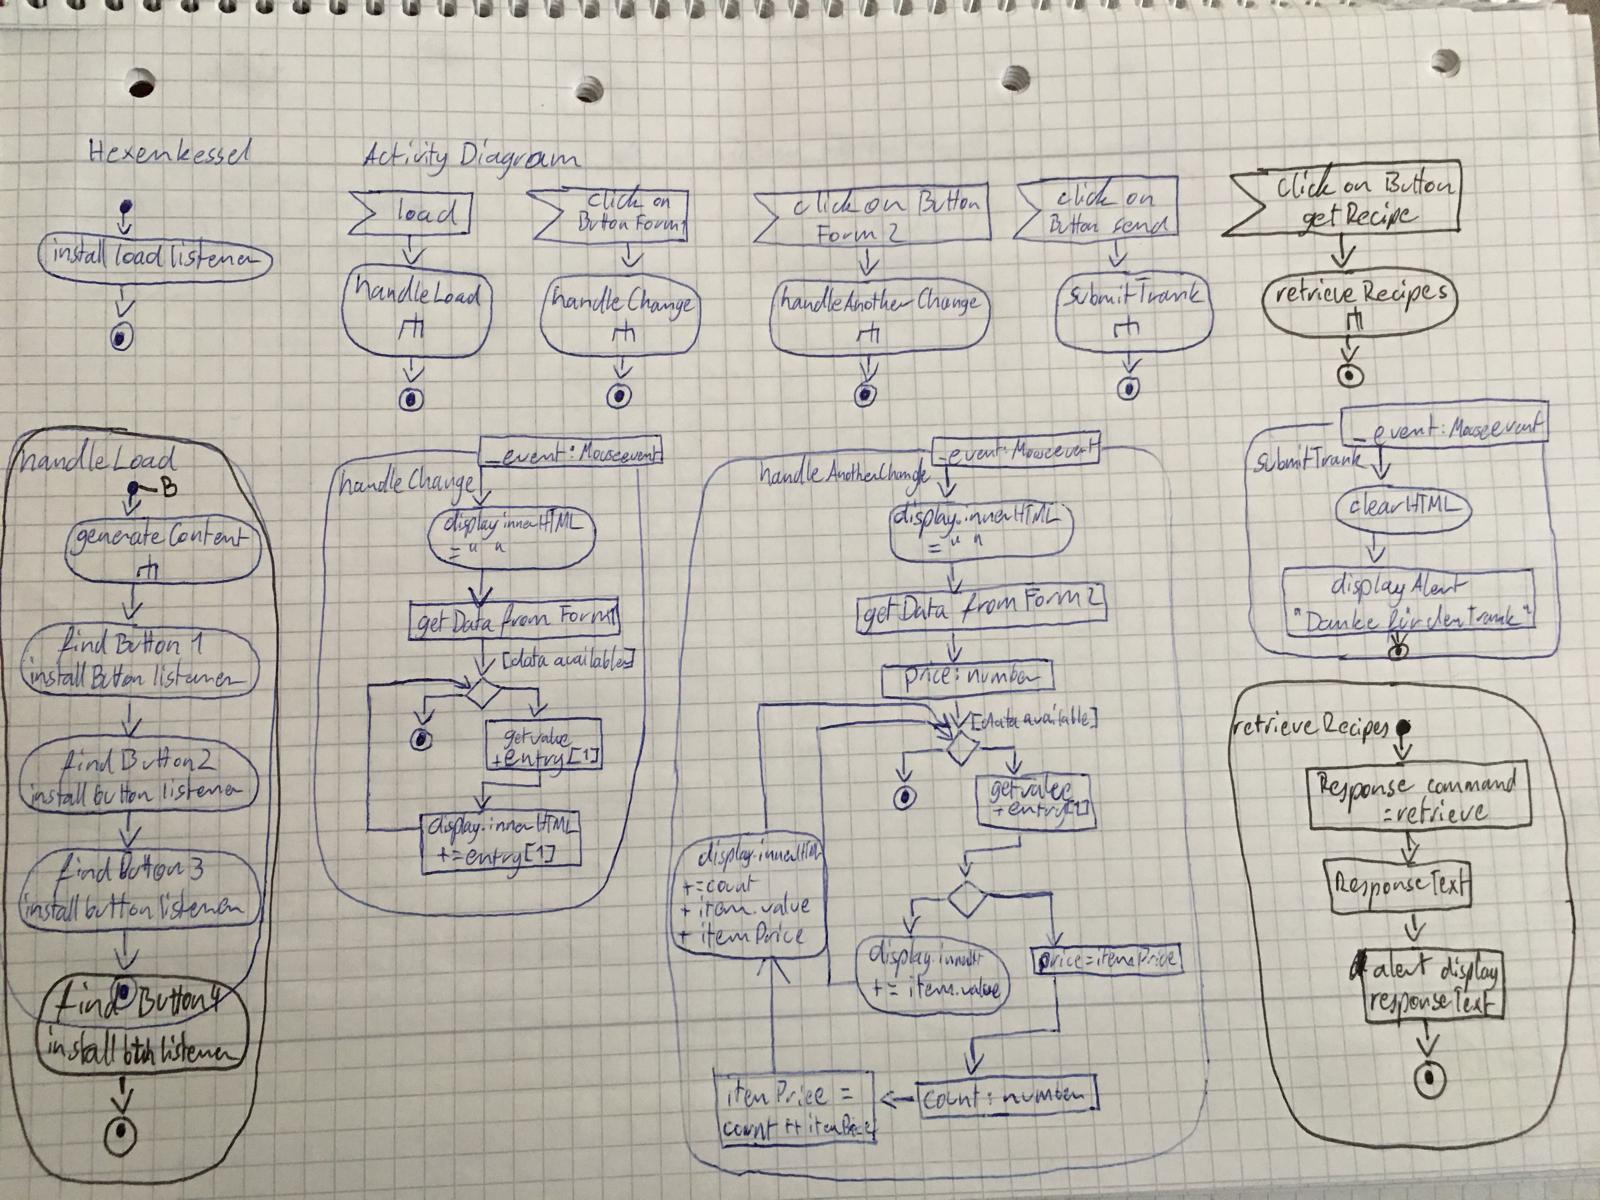 Hexenkessel
Activity Diagram
install load listener
load
handleLoad
click on
Button Form1
handleChange
click on Button
Form 2
handleAnotherChange
click on
Button send
submitTrank
click on Button
getRecipe
retrieveRecipes
handleLoad
B
generateContent
find Button 1
install Button listener
find Button2
install button listener
find Button 3
install button listener
find Button4
install btn listener
_event: Mouseevent
handleChange
display.innerHTML
= " "
getData from Form1
[data available]
getvalue
+entry[1]
display.innerHTML
+=entry[1]
_event: Mouseevent
handleAnotherChange
display.innerHTML
= " "
getData from Form2
price: number
[data available]
getvalue
+entry[1]
display.innerHTML
+=count
+ item.value
+ itemPrice
display.innerH
+= item.value
price=itemPrice
count: number
itemPrice =
count ++
_event: Mouseevent
submitTrank
clearHTML
displayAlert
"Danke für den Trank"
retrieveRecipes
Response command
=retrieve
ResponseText
alert display
responseText